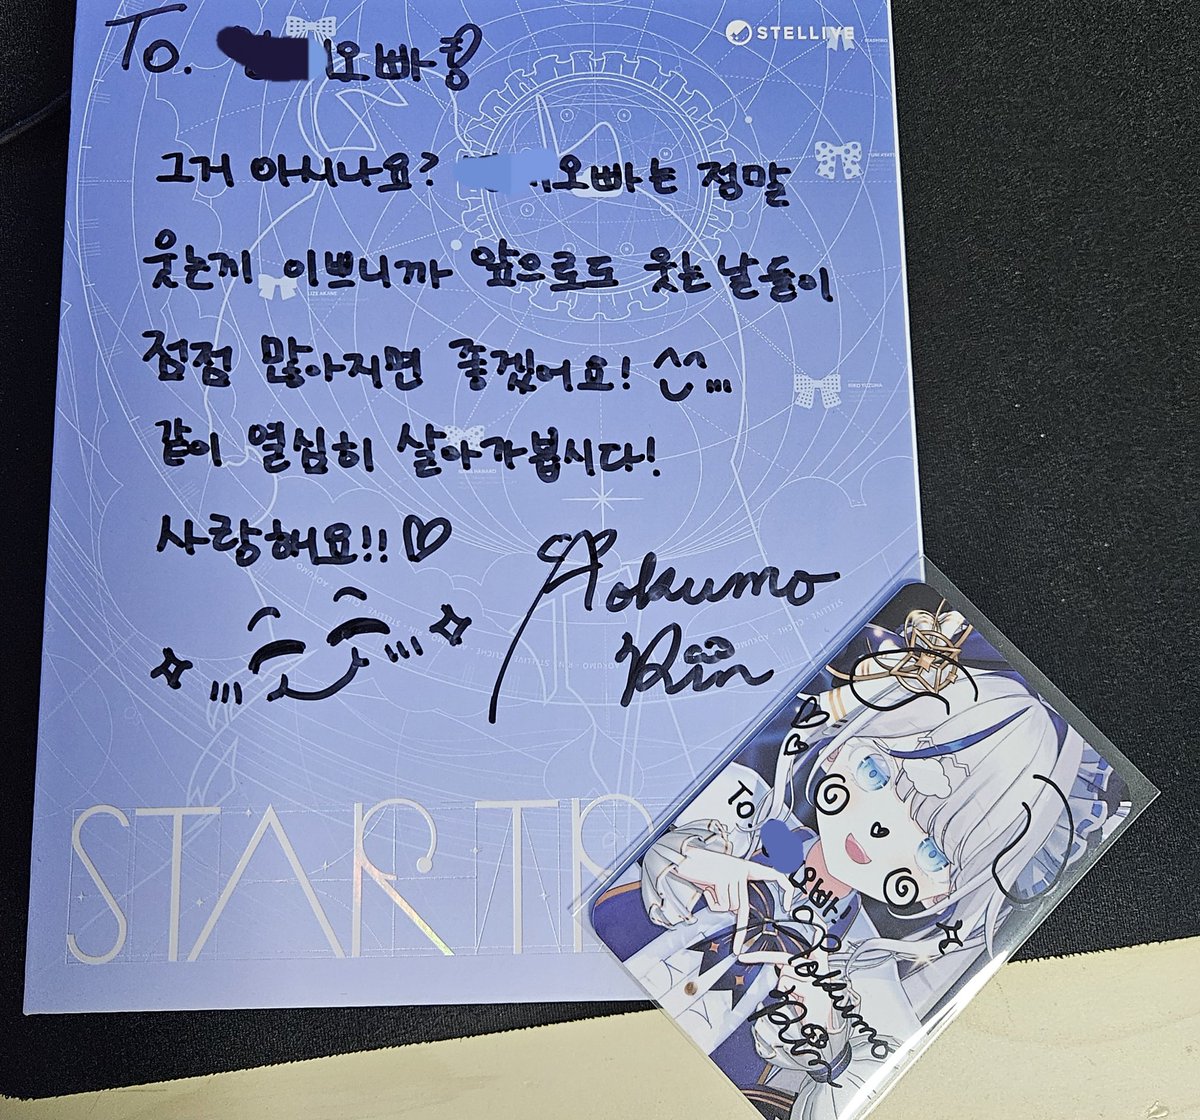 STELLIVE
To. 오빠
그거 아시나요? 오빠는 정말
웃는게 이쁘니까 앞으로도 웃는 날들이
점점 많아지면 좋겠어요! ^^
같이 열심히 살아가봅시다!
사랑해요!! ♡
Aokumo
Rin
STAR TR
To.
오빠!
Aokumo
Rin